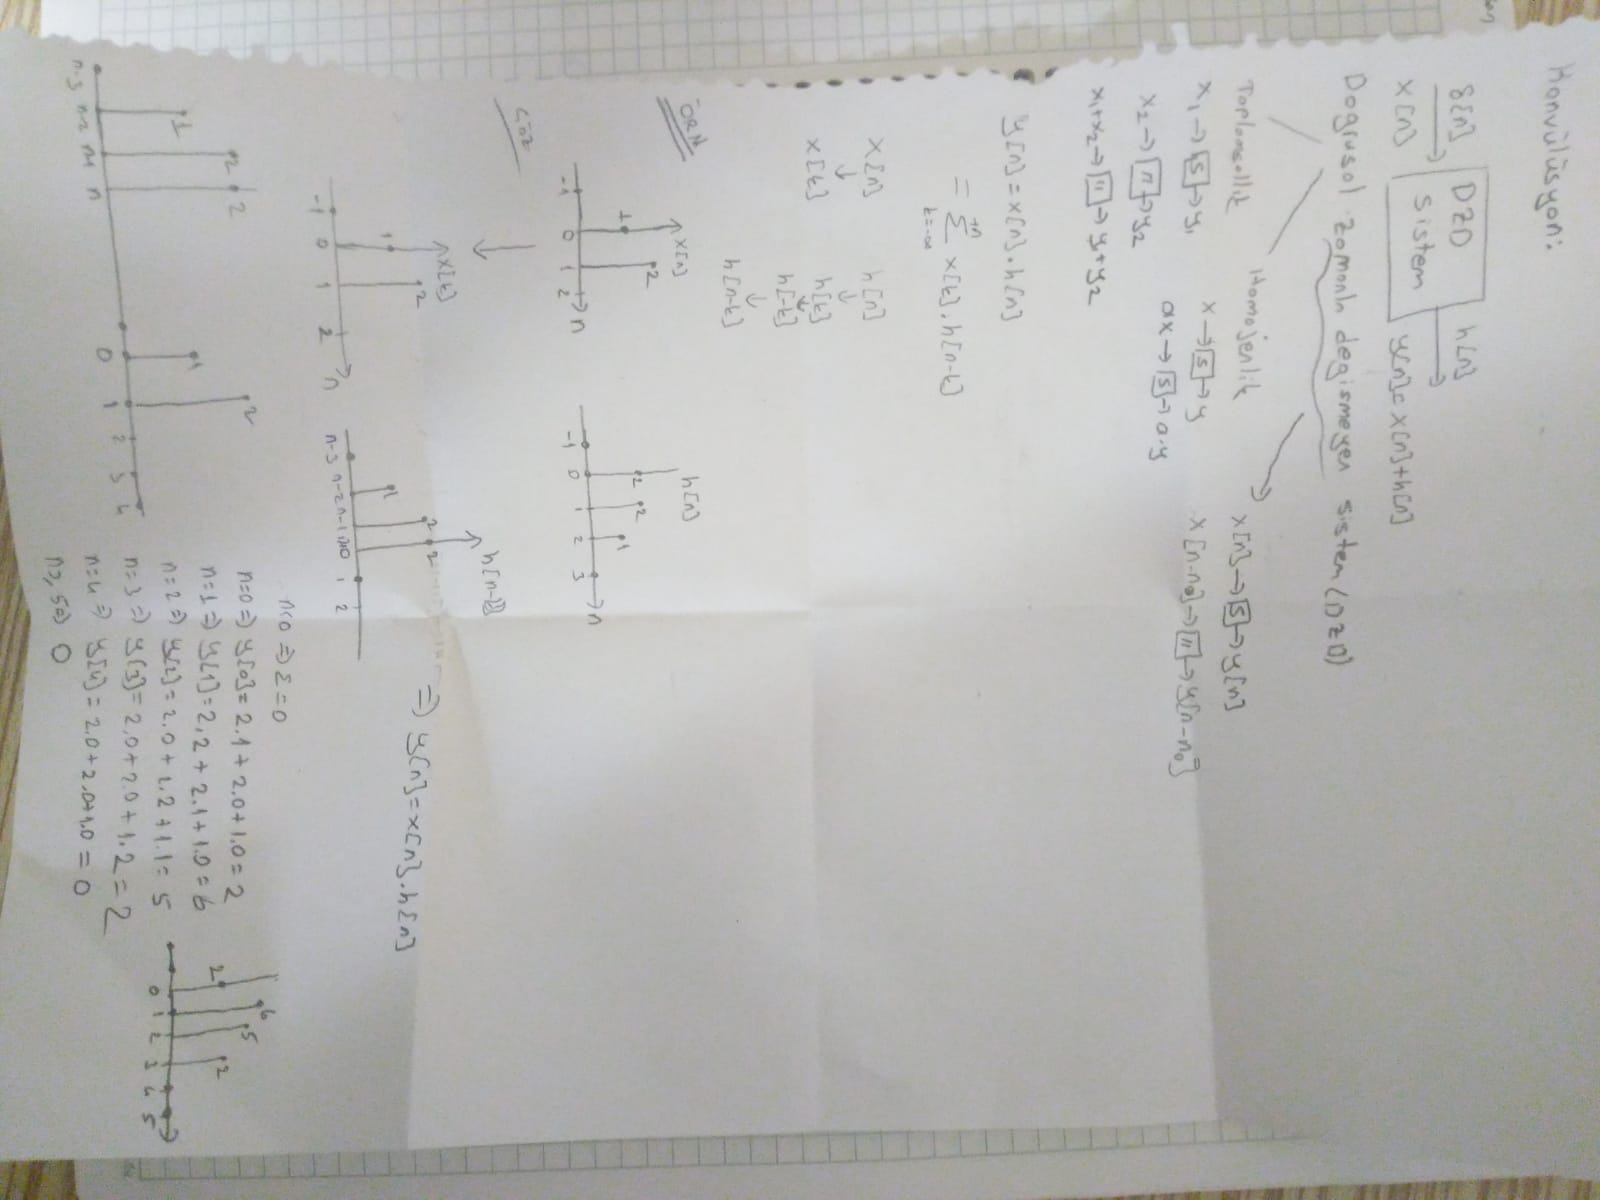 Konvülüsyon:
δ[n]
x[n]
DZD
sistem
h[n]
y[n]= x[n]+h[n]
Doğrusal zamanla değişmeyen sistem (DZD)
Toplamsallık
x₁→[S]→y₁
x₂→["]→y₂
x₁+x₂→["]→ y₁+y₂
Homojenlik
x→[S]→y
ax→[S]→a.y
x[n]→[S]→y[n]
x[n-n₀]→["]→y[n-n₀]
y[n]=x[n].h[n]
= Σ x[k].h[n-k]
k=-∞
x[n]
↓
x[k]
h[n]
↓
h[k]
↓
h[-k]
↓
h[n-k]
ÖRN
x[n]
1 2
-1 0 1 2 n
h[n]
2 2 1
-1 0 1 2 3 n
ÇÖZ
x[k]
1 2
-1 0 1 2 n
2 2 1
n-3 n-2 n-1 1 2
⇒ y[n]=x[n].h[n]
1 2 2
n-3 n-2 n-1 n
1 2
0 1 2 3 4
n<0 ⇒ Σ=0
n=0⇒ y[0]= 2.1+2.0+1.0=2
n=1⇒ y[1]=2.2+2.1+1.0=6
n=2⇒ y[2]=2.0+2.2+1.1=5
n=3⇒ y[3]=2.0+2.0+1.2=2
n=4⇒ y[4]=2.0+2.0+1.0=0
n≥5⇒ 0
2 6 5 2
0 1 2 3 4 5